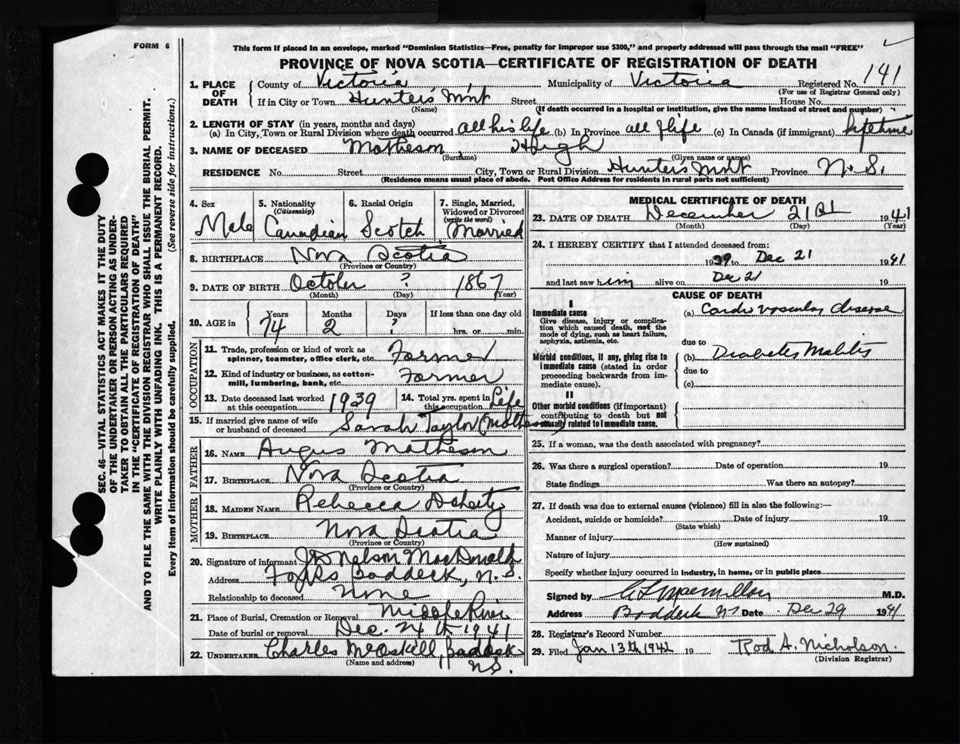 FORM 6
This form if placed in an envelope, marked "Dominion Statistics—Free, penalty for improper use $300," and properly addressed will pass through the mail "FREE"
PROVINCE OF NOVA SCOTIA—CERTIFICATE OF REGISTRATION OF DEATH
1. PLACE OF DEATH County of Victoria Municipality of Victoria Registered No. 141
(For use of Registrar General only)
If in City or Town Hunter's Mnt Street House No.
(Name) (If death occurred in a hospital or institution, give the name instead of street and number)
2. LENGTH OF STAY (in years, months and days)
(a) In City, Town or Rural Division where death occurred all his life (b) In Province all life (c) In Canada (if immigrant) lifetime
3. NAME OF DECEASED Matheson, Hugh
(Surname) (Given name or names)
RESIDENCE No. Street City, Town or Rural Division Hunter's Mnt Province N.S.
(Residence means usual place of abode. Post Office Address for residents in rural parts not sufficient)
4. Sex Male
5. Nationality (Citizenship) Canadian
6. Racial Origin Scotch
7. Single, Married, Widowed or Divorced (write the word) Married
8. BIRTHPLACE Nova Scotia
(Province or Country)
9. DATE OF BIRTH October ? 1867
(Month) (Day) (Year)
10. AGE in Years 74 Months 2 Days ? If less than one day old hrs. or min.
OCCUPATION
11. Trade, profession or kind of work as spinner, teamster, office clerk, etc. Farmer
12. Kind of industry or business, as cotton-mill, lumbering, bank, etc. Farmer
13. Date deceased last worked at this occupation 1939
14. Total yrs. spent in this occupation Life
15. If married give name of wife or husband of deceased Sarah Taylor Matheson
FATHER
16. NAME Angus Matheson
17. BIRTHPLACE Nova Scotia
(Province or Country)
MOTHER
18. MAIDEN NAME Rebecca Doherty
19. BIRTHPLACE Nova Scotia
(Province or Country)
20. Signature of informant Nelson MacDonald
Address Forks Baddeck, N.S.
Relationship to deceased None
21. Place of Burial, Cremation or Removal Middle River
Date of burial or removal Dec. 24th 1941
22. UNDERTAKER Charles McAskill, Baddeck
(Name and address) N.S.
MEDICAL CERTIFICATE OF DEATH
23. DATE OF DEATH December 21st 1941
(Month) (Day) (Year)
24. I HEREBY CERTIFY that I attended deceased from:
1939 to Dec 21 1941
and last saw him alive on Dec 21 19
CAUSE OF DEATH
I
Immediate cause
Give disease, injury or complication which caused death, not the mode of dying, such as heart failure, asphyxia, asthenia, etc.
(a) Cardio vascular disease
due to
Morbid conditions, if any, giving rise to immediate cause (stated in order proceeding backwards from immediate cause).
(b) Diabetes Melitis
due to
(c)
II
Other morbid conditions (if important) contributing to death but not causally related to immediate cause.
25. If a woman, was the death associated with pregnancy?
26. Was there a surgical operation? Date of operation 19
State findings Was there an autopsy?
27. If death was due to external causes (violence) fill in also the following:—
Accident, suicide or homicide? Date of injury 19
(State which)
Manner of injury
(How sustained)
Nature of injury
Specify whether injury occurred in industry, in home, or in public place
Signed by C L MacMillan M.D.
Address Baddeck NS Date Dec 29 1941
28. Registrar's Record Number
29. Filed Jan 13th 1942 19 Rod A. Nicholson.
(Division Registrar)
SEC. 46—VITAL STATISTICS ACT MAKES IT THE DUTY
OF THE UNDERTAKER OR PERSON ACTING AS UNDER-
TAKER TO OBTAIN ALL THE PARTICULARS REQUIRED
IN THE "CERTIFICATE OF REGISTRATION OF DEATH"
AND TO FILE THE SAME WITH THE DIVISION REGISTRAR WHO SHALL ISSUE THE BURIAL PERMIT.
WRITE PLAINLY WITH UNFADING INK. THIS IS A PERMANENT RECORD.
Every item of information should be carefully supplied. (See reverse side for instructions.)